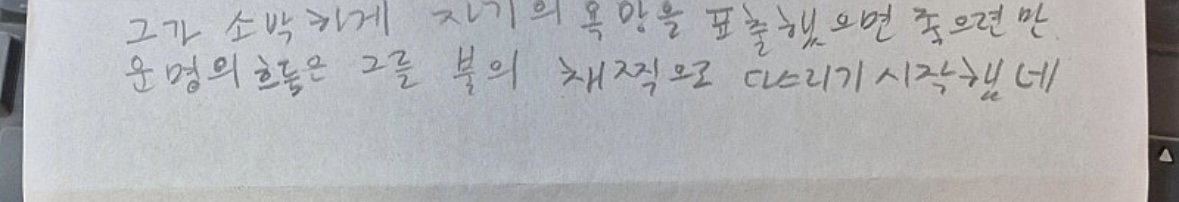 그가 소박하게 자기의 욕망을 표출했으면 족으련만
운명의 흐름은 그를 불의 채찍으로 다스리기 시작했네